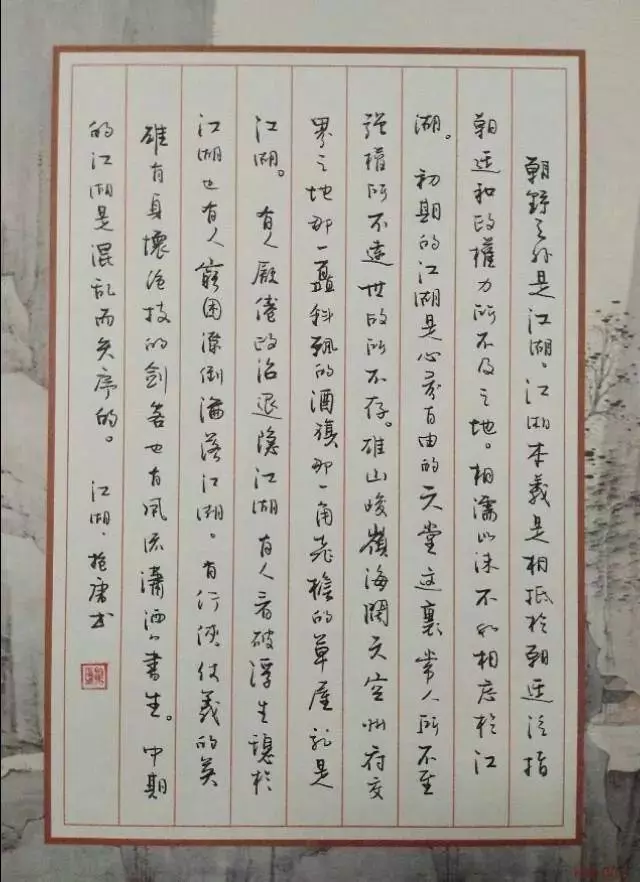 朝野之外是江湖。江湖本義是相抵於朝廷泛指
朝廷和政權力所不及之地。相濡以沫不如相忘於江
湖。初期的江湖是心灵自由的天堂这裏常人所不至
强權所不達世故所不存。雄山峻嶺海闊天空州府交
界之地那一盏斜飄的酒旗那一角飞檐的草屋就是
江湖。有人厭倦政治退隐江湖有人看破浮生隐於
江湖也有人窮困潦倒淪落江湖。有行俠仗義的英
雄有身懷绝技的劍客也有風流瀟洒書生。中期
的江湖是混乱而失序的。江湖·抱唐书